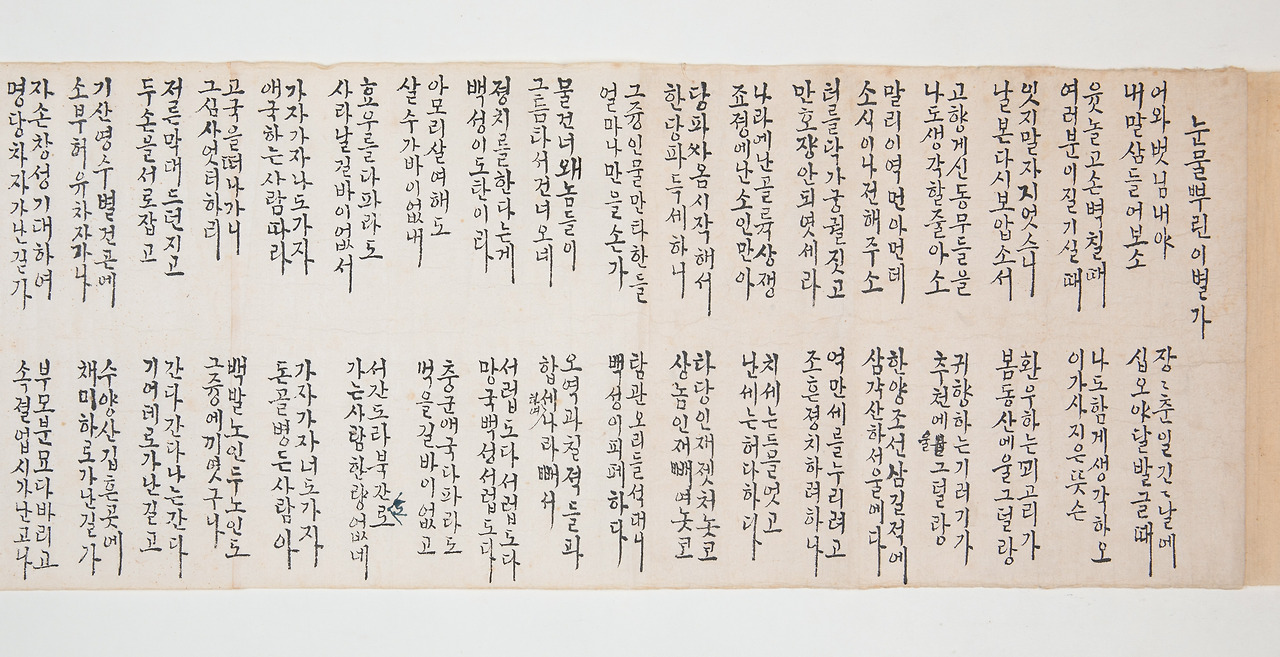 눈물뿌린이별가
어와벗님내야
내말삼들어보소
장〻춘일긴〻날에
십오야달발글때
윳놀고손벽칠때
여러분이질기실때
나도함게생각하오
이가사지은뜻슨
잇지말자지엇스니
날본다시보압소서
환우하는꾀고리가
봄동산에울그덜랑
고향계신동무들을
나도생각할줄아소
귀향하는기러기가
추천에울그덜랑
말리이역먼아먼데
소식이나전해주소
한양조선삼길적에
삼각산하서울에다
터를닥가궁궐짓고
만호쟝안되엿세라
억만세를누리려고
조흔졍치하려하나
나라에난골륙상쟁
죠졍에난소인만아
치세는드믈엇고
난세는허다하다
당파싸옴시작해서
한당파득세하니
타당인재젯처놋코
상놈인재빼여놋코
그즁인물만타한들
얼마나만을손가
탐관오리들석대니
백성이피폐하다
물건너왜놈들이
그틈타서건너오네
오역과칠적들과
합세나라빼서
졍치를한다는게
백성이도탄이라
서럽도다서럽도다
망국백성서럽도다
아모리살여해도
살수가바이없내
충군애국다파라도
먹을길바이없고
효우를다파라도
사라날길바이없서
서간도라북간도로
가는사람한량없네
가자가자나도가자
애국하는사람따라
가자가자너도가자
돈골병든사람아
고국을떠나가니
그심사엇더하리
백발노인두노인도
그즁에끼엿구나
져른막대드던지고
두손을서로잡고
간다간다나는간다
기어데로가난길고
기산영수별건곤에
소부허유차자가나
수양산깁흔곳에
채미하로가난길가
자손창성기대하여
명당차자가난길가
부모분묘다바리고
속졀업시가난고나